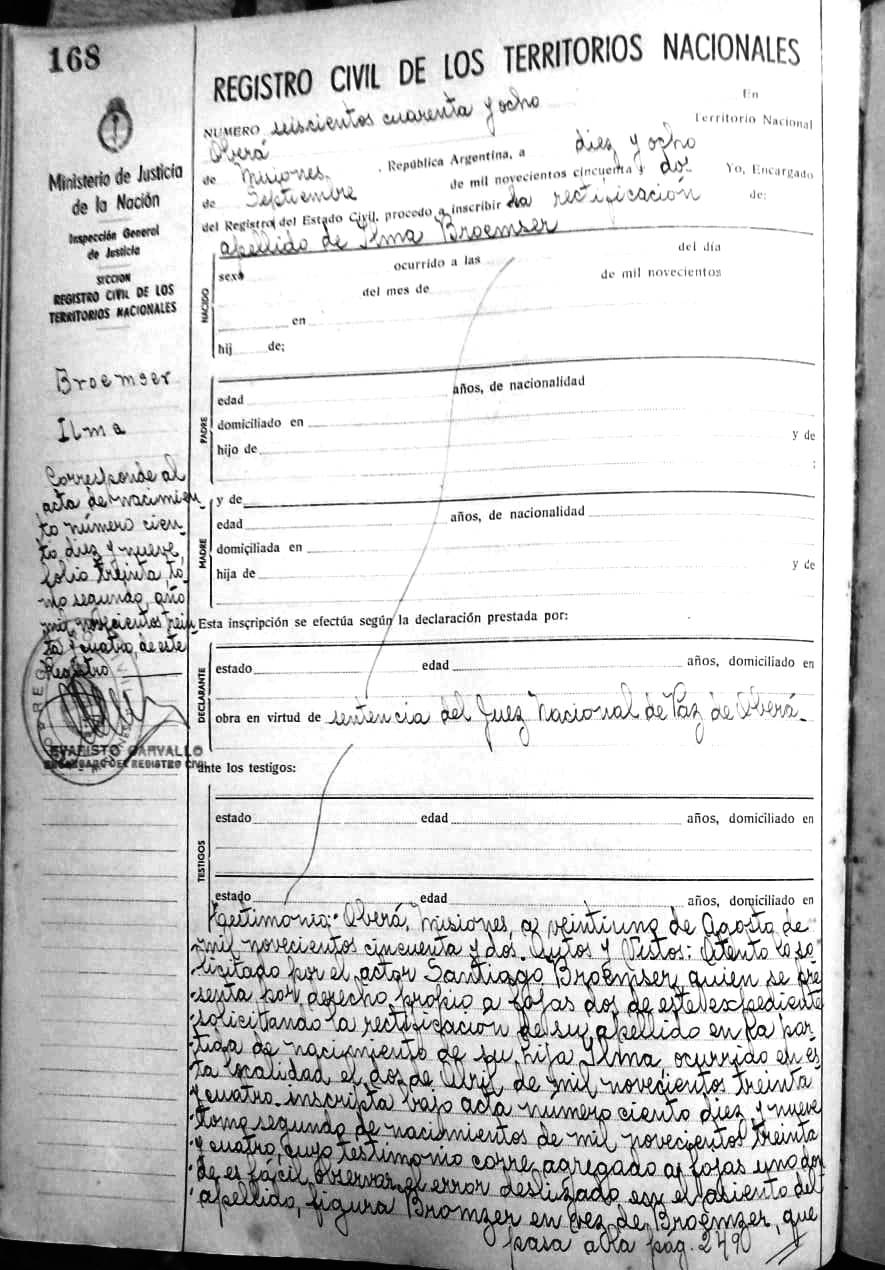 168
Ministerio de Justicia
de la Nación
Inspección General
de Justicia
SECCION
REGISTRO CIVIL DE LOS
TERRITORIOS NACIONALES
Broemser
Ilma
Corresponde al
acta de nacimien
to número cien-
to diez y nueve,
folio treinta, to-
mo segundo, año
mil novecientos trein
ta y cuatro, de este
Registro
EVARISTO CARVALLO
ENCARGADO DEL REGISTRO CIVIL
REGISTRO CIVIL DE LOS TERRITORIOS NACIONALES
NUMERO seiscientos cuarenta y ocho En
Oberá Territorio Nacional
de Misiones, República Argentina, a diez y ocho
de Septiembre de mil novecientos cincuenta y dos Yo, Encargado
del Registro del Estado Civil, procedo a inscribir la rectificación de:
apellido de Ilma Broemser
NACIDO
sexo ocurrido a las del día
del mes de de mil novecientos
en
hij de;
PADRE
edad años, de nacionalidad
domiciliado en
hijo de y de
;
MADRE
y de
edad años, de nacionalidad
domiciliada en
hija de y de
Esta inscripción se efectúa según la declaración prestada por:
DECLARANTE
estado edad años, domiciliado en
obra en virtud de sentencia del Juez Nacional de Paz de Oberá.
ante los testigos:
TESTIGOS
estado edad años, domiciliado en
estado edad años, domiciliado en
Testimonio: Oberá, Misiones, a veintiuno de Agosto de
mil novecientos cincuenta y dos. Autos y Vistos: Atento lo so
licitado por el actor Santiago Broemser, quien se pre
senta por derecho propio a fojas dos de este expediente
solicitando la rectificación de su apellido en la par-
tida de nacimiento de su hija Ilma, ocurrido en es
ta localidad el dos de Abril de mil novecientos treinta
y cuatro inscripta bajo acta numero ciento diez y nueve
tomo segundo de nacimientos de mil novecientos treinta
y cuatro, cuyo testimonio corre agregado a fojas uno don
de es fácil observar el error deslizado en el asiento del
apellido, figura Bromzer en vez de Broemzer, que
pasa a la pág. 249